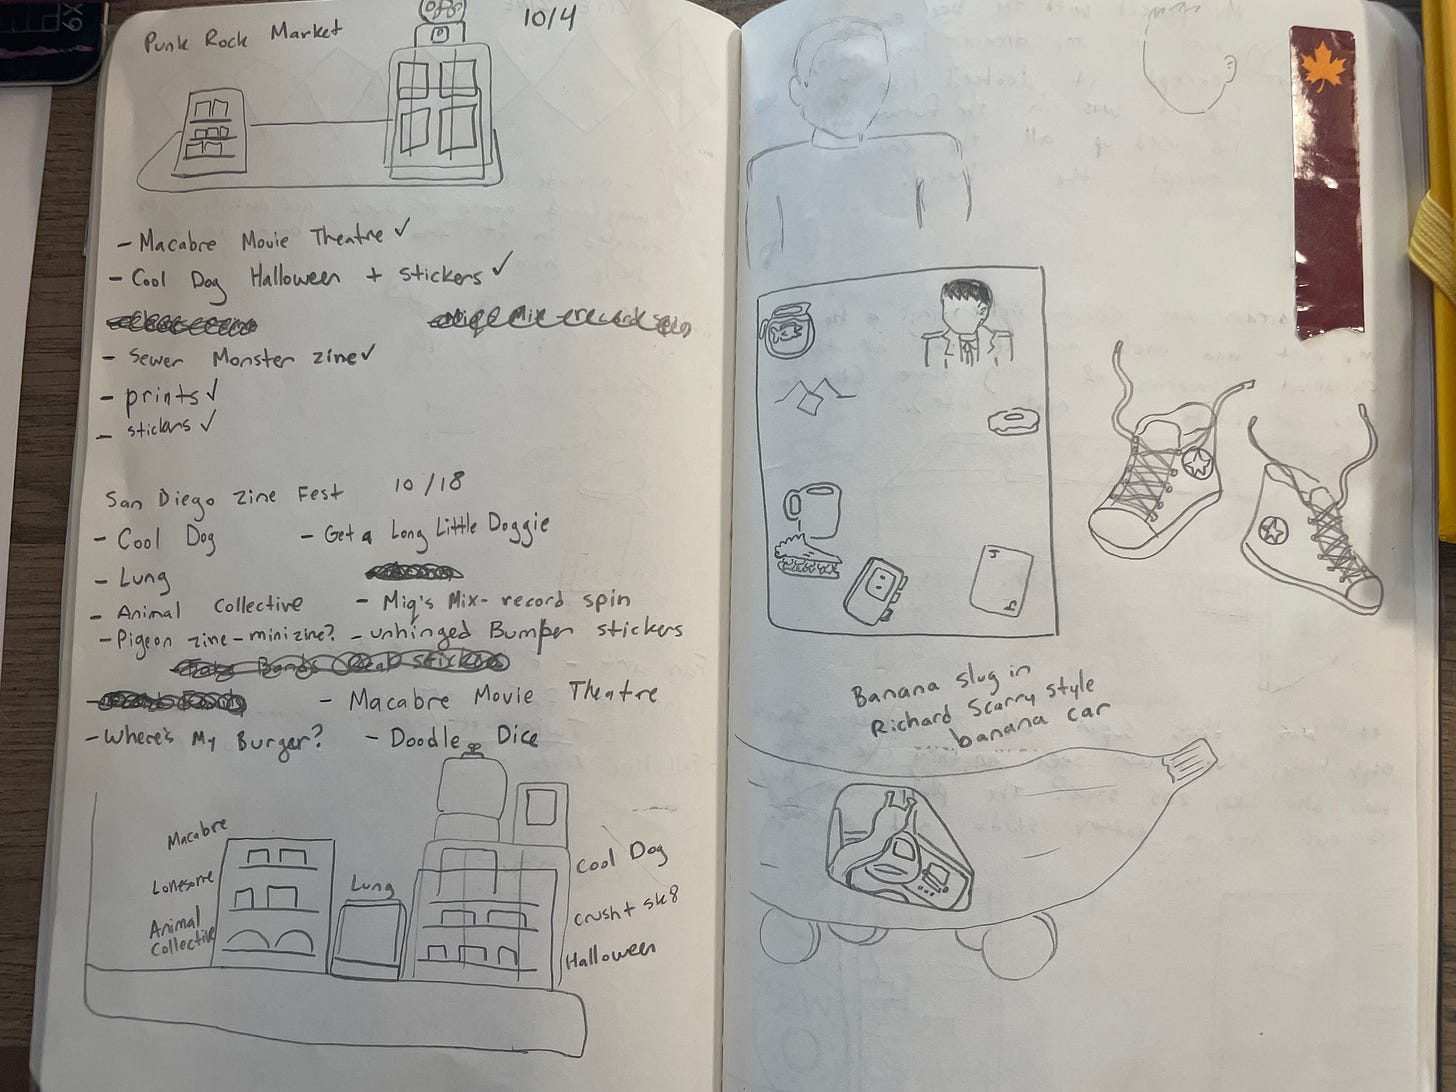 Punk Rock Market
10/4
- Macabre Movie Theatre ✓
- Cool Dog Halloween + stickers ✓
- Sewer Monster zine ✓
- prints ✓
- stickers ✓
San Diego Zine Fest 10/18
- Cool Dog - Get a Long Little Doggie
- Lung
- Animal Collective - Miq's Mix - record spin
- Pigeon zine - mini zine? - unhinged Bumper stickers
- Macabre Movie Theatre
- Where's My Burger? - Doodle Dice
Macabre
Lonesome
Animal
Collective
Lung
Cool Dog
crush + sk8
Halloween
Banana slug in
Richard Scarry style
banana car